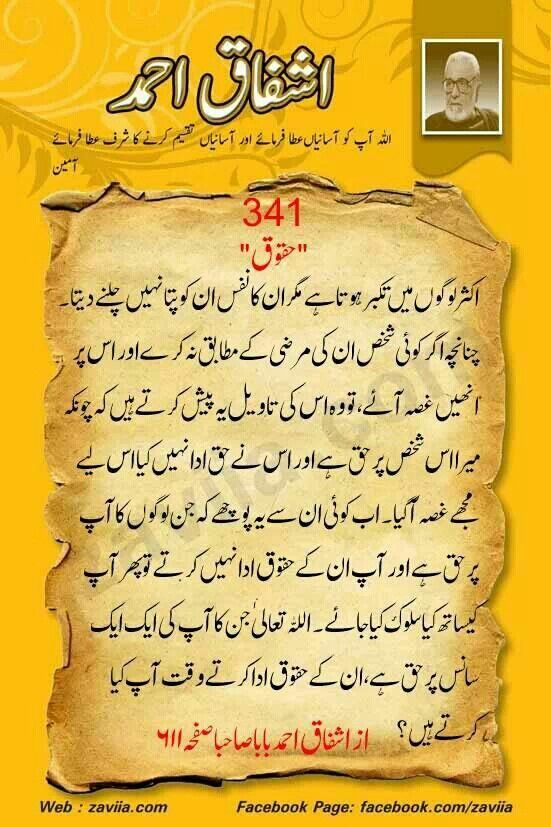 اشفاق احمد
اللہ آپ کو آسانیاں عطا فرمائے اور آسانیاں تقسیم کرنے کا شرف عطا فرمائے
آمین
341
"حقوق"
اکثر لوگوں میں تکبر ہوتا ہے مگر ان کا نفس ان کو پتا نہیں چلنے دیتا۔
چنانچہ اگر کوئی شخص ان کی مرضی کے مطابق نہ کرے اور اس پر
انھیں غصہ آئے، تو وہ اس کی تاویل یہ پیش کرتے ہیں کہ چونکہ
میرا اس شخص پر حق ہے اور اس نے حق ادا نہیں کیا اس لیے
مجھے غصہ آ گیا۔ اب کوئی ان سے یہ پوچھے کہ جن لوگوں کا آپ
پر حق ہے اور آپ ان کے حقوق ادا نہیں کرتے تو پھر آپ
کیساتھ کیا سلوک کیا جائے۔ اللہ تعالیٰ جن کا آپ کی ایک ایک
سانس پر حق ہے، ان کے حقوق ادا کرتے وقت آپ کیا
کرتے ہیں؟
از اشفاق احمد بابا صاحبا صفحہ ۶۱۱
zaviia.com
Web : zaviia.com Facebook Page: facebook.com/zaviia